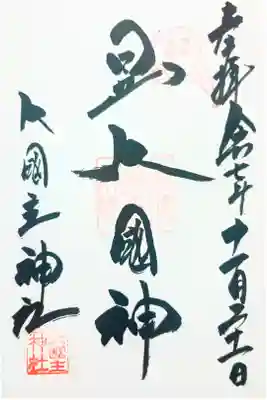 奉拝 令和七年十一月二十一日
大國神
大國主神社